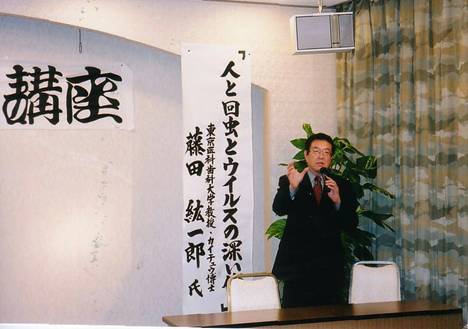 講座
『人と回虫とウイルスの深い
東京医科歯科大学教授・カイチュウ博士
藤田 紘一郎 氏